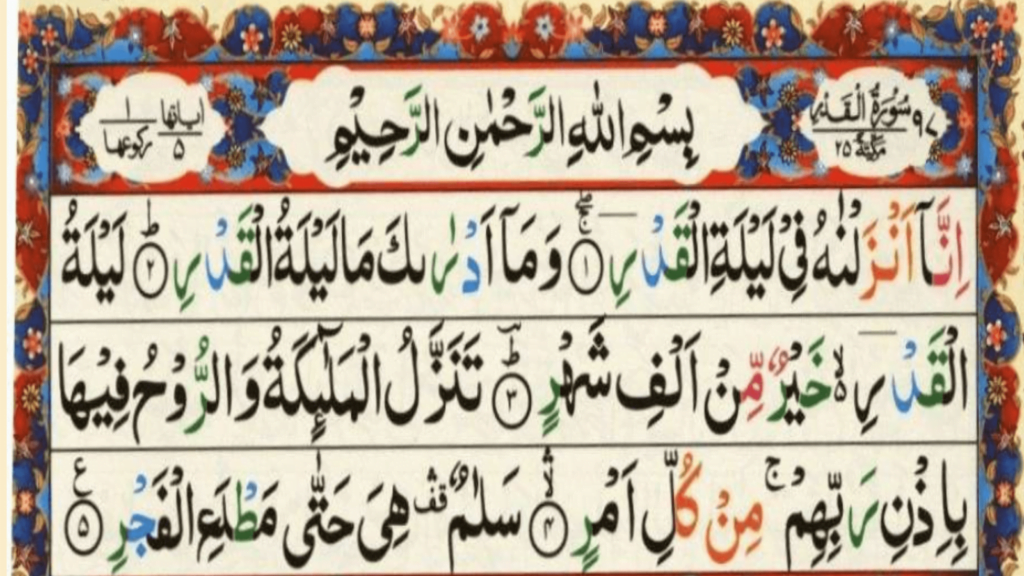 ٩٧ سُوْرَةُ الْقَدْرِ
مَكِّيَّةٌ ٢٥
بِسْمِ اللّٰهِ الرَّحْمٰنِ الرَّحِيْمِ
اٰیاتها ١
رکوعها ٥
اِنَّاۤ اَنْزَلْنٰهُ فِیْ لَیْلَةِ الْقَدْرِ ۝١ وَ مَاۤ اَدْرٰىكَ مَا لَیْلَةُ الْقَدْرِ ۝٢ لَیْلَةُ
الْقَدْرِ خَیْرٌ مِّنْ اَلْفِ شَهْرٍ ۝٣ تَنَزَّلُ الْمَلٰٓىِٕكَةُ وَ الرُّوْحُ فِیْهَا
بِاِذْنِ رَبِّهِمْ ۚ مِنْ كُلِّ اَمْرٍ ۝٤ سَلٰمٌ هِیَ حَتّٰى مَطْلَعِ الْفَجْرِ ۝٥